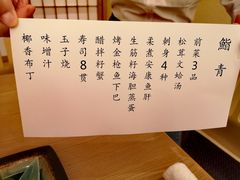 鮨青
前菜3品
松茸文蛤汤
刺身4种
柔煮安康鱼肝
生筋籽海胆蒸蛋
烤金枪鱼下巴
醋拌籽蟹
寿司8贯
玉子烧
味增汁
椰香布丁